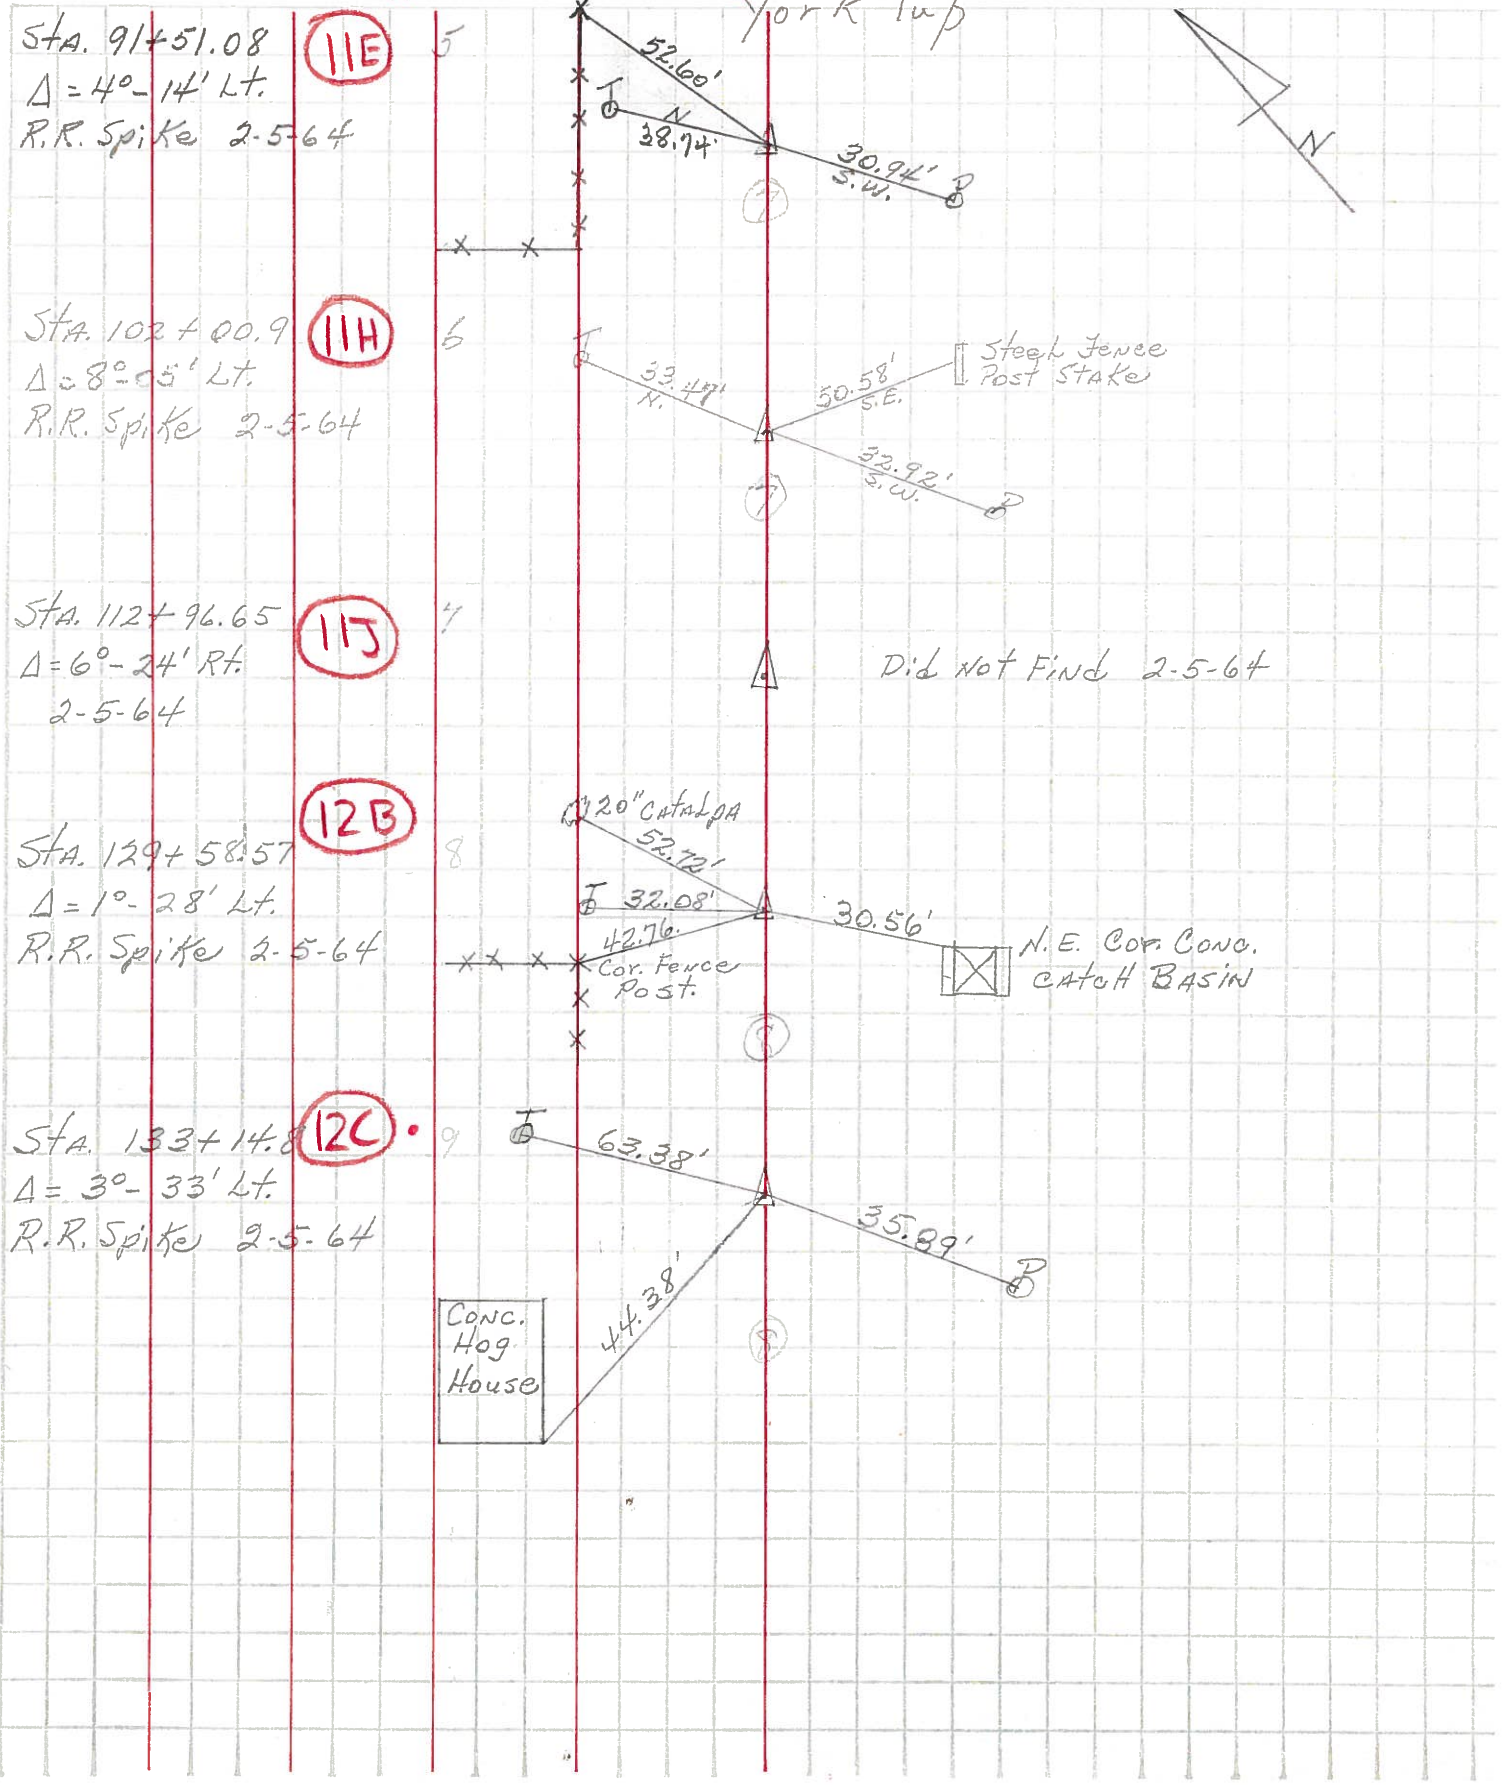 York Twp
N
Sta. 91+51.08
Δ = 4°-14' Lt.
R.R. Spike 2-5-64
11E
5
52.60'
T
N
38.74'
30.94'
S.W.
P
7
Sta. 102+00.9
Δ = 8°-05' Lt.
R.R. Spike 2-5-64
11H
6
T
33.47'
N.
50.58'
S.E.
Steel Fence
Post Stake
32.92'
S.W.
P
7
Sta. 112+96.65
Δ = 6°-24' Rt.
2-5-64
11J
7
Did Not Find 2-5-64
12B
Sta. 129+58.57
Δ = 1°-28' Lt.
R.R. Spike 2-5-64
8
20" Catalpa
52.72'
T
32.08'
42.76.
Cor. Fence
Post.
30.56'
N.E. Cor. Conc.
Catch Basin
8
12C
Sta. 133+14.8
Δ = 3°-33' Lt.
R.R. Spike 2-5-64
9
T
63.38'
35.89'
P
44.38'
Conc.
Hog
House
8